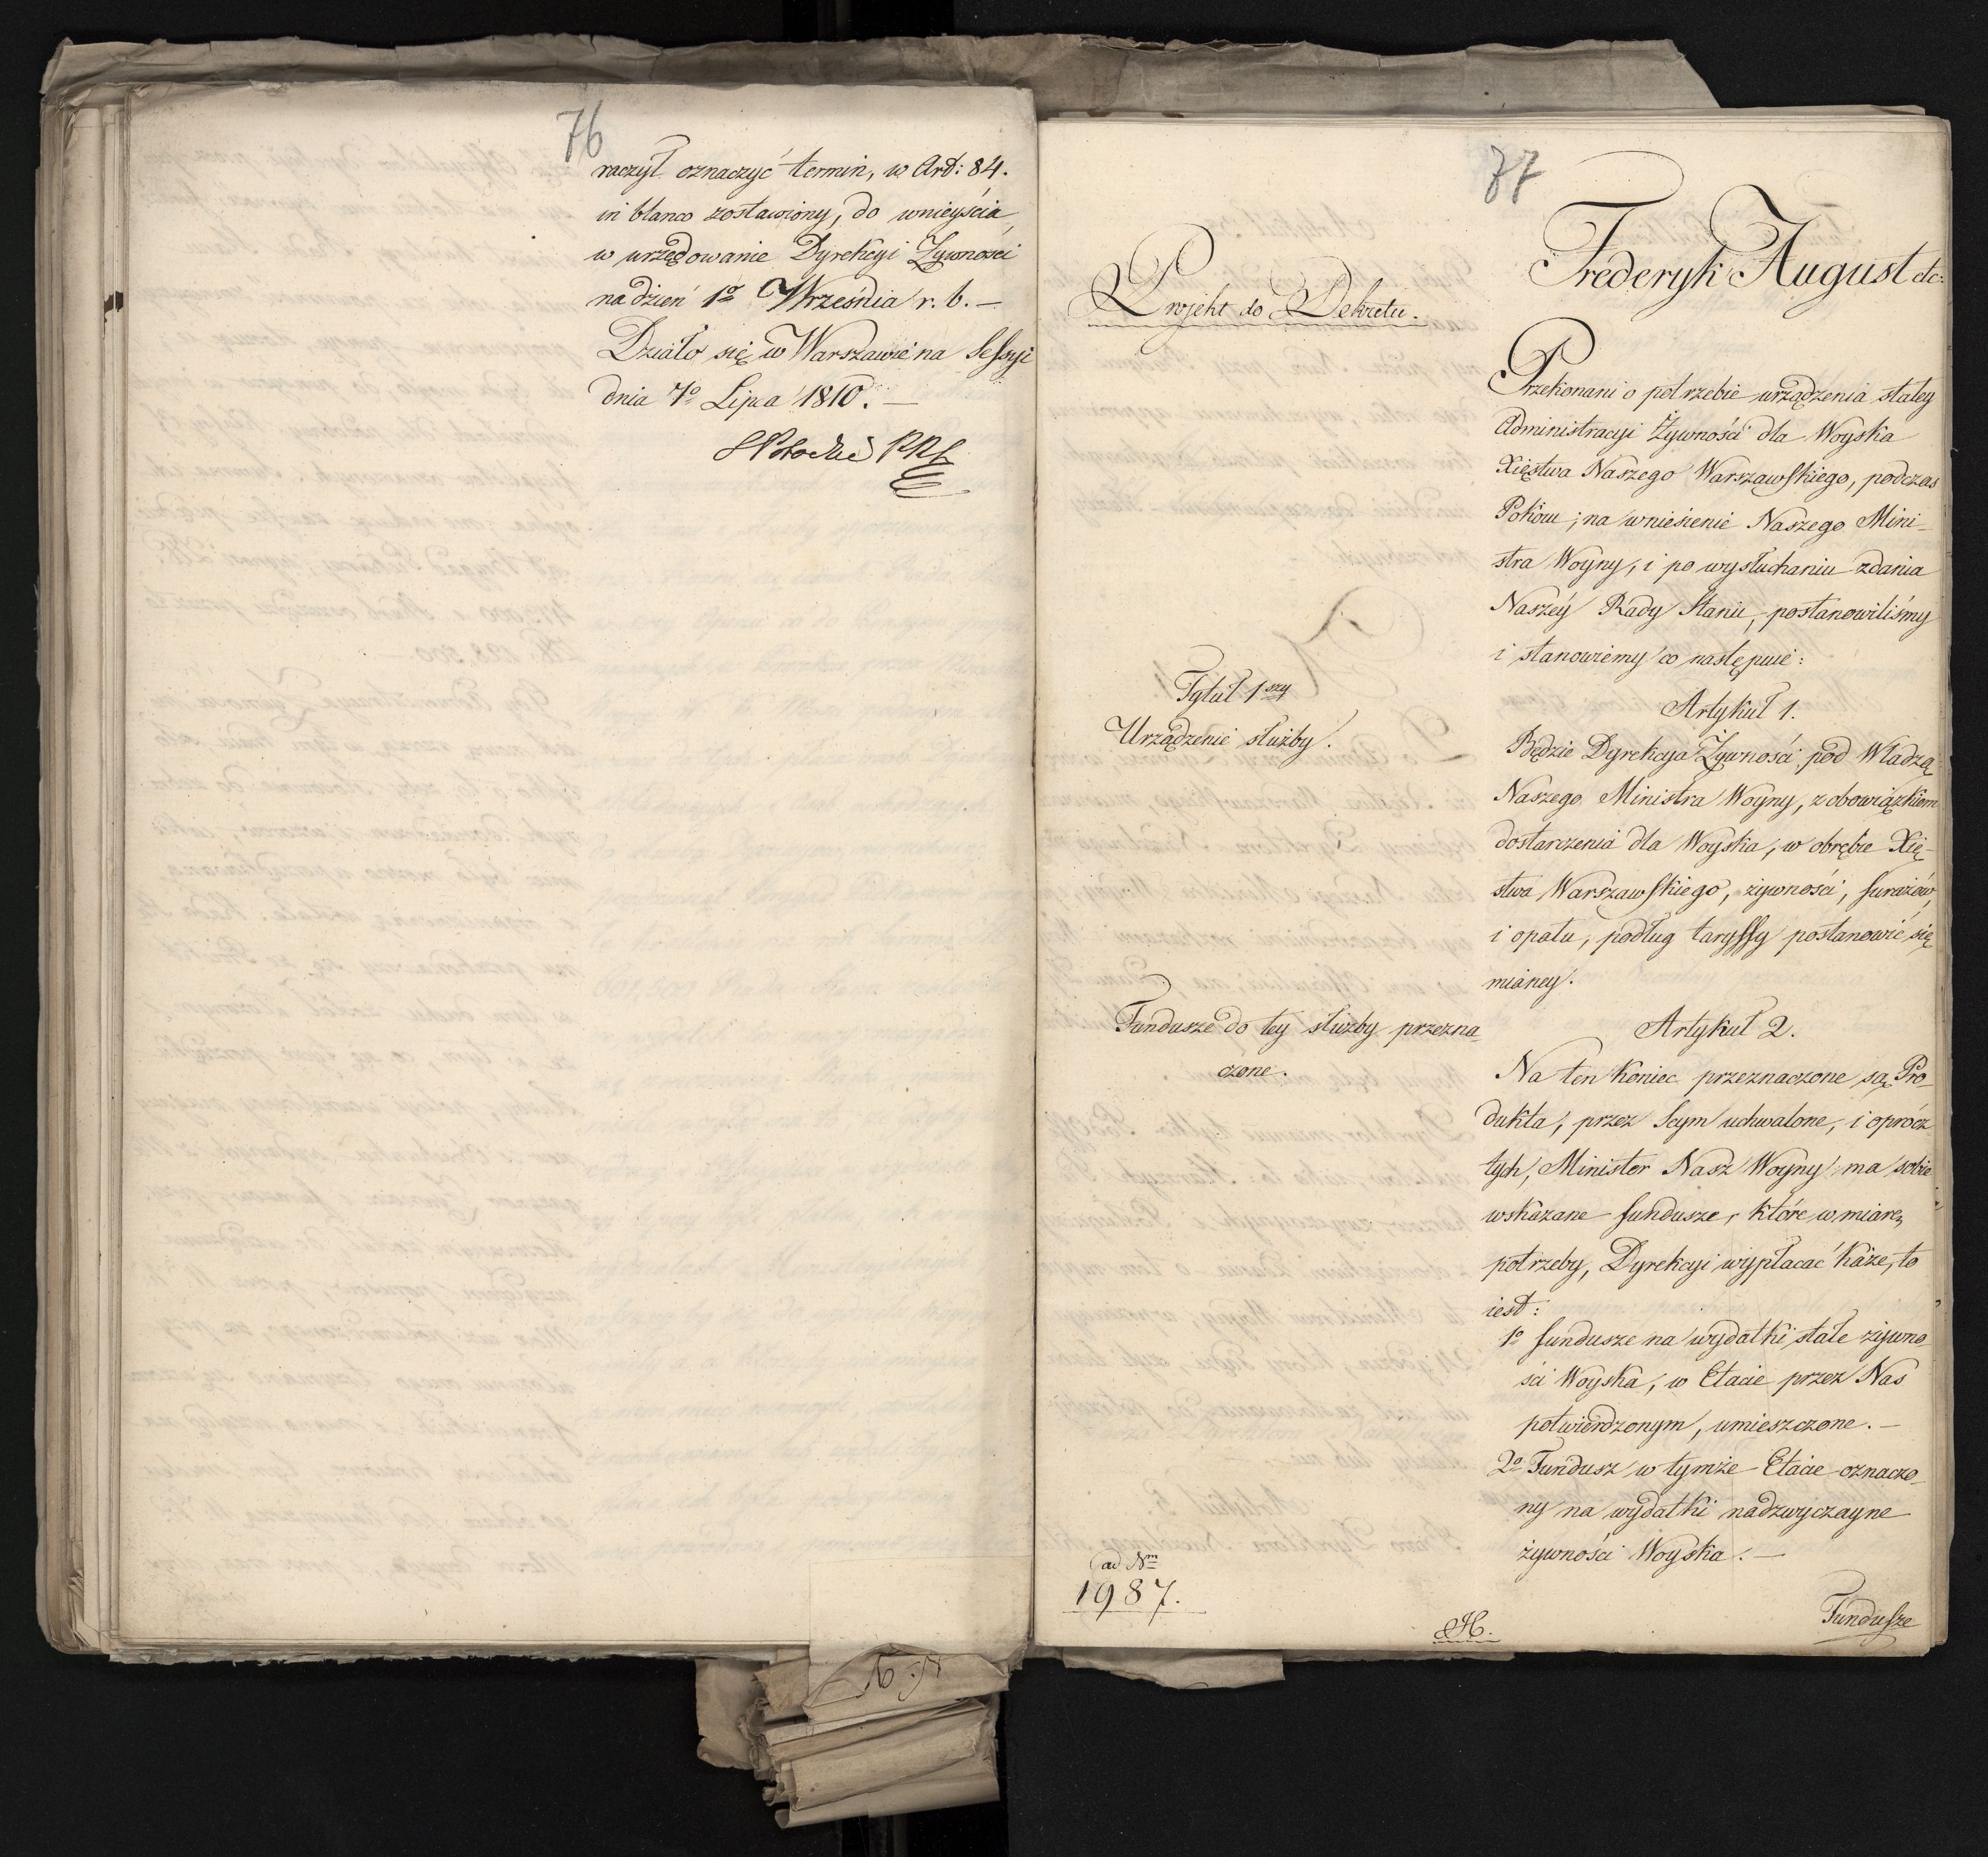 76
raczył oznaczyć termin, w Art: 84.
in blanco zostawiony, do wnieyścia
w urzędowanie Dyrekcyi Żywności
na dzień 1º Września r. b. —
Działo się w Warszawie na Sessyi
dnia 7º Lipca 1810. —
SPotocki PRS
77
Projekt do Dekretu.
Frederyk August etc:
Przekonani o potrzebie urządzenia stałey
Administracyi Żywności dla Woyska
Xięstwa Naszego Warszawskiego, podczas
Pokoiu; na wniesienie Naszego Mini-
stra Woyny, i po wysłuchaniu zdania
Naszéy Rady Stanu, postanowiliśmy
i stanowiemy co następuie:
Tytuł 1szy
Urządzenie służby.
Artykuł 1.
Będzie Dyrekcya Żywności, pod Władzą
Naszego Ministra Woyny, z obowiązkiem
dostarczenia dla Woyska, w obrębie Xię-
stwa Warszawskiego, żywności, furażów,
i opału, podług taryffy postanowić się
mianey.
Fundusze do tey służby przezna-
czone.
Artykuł 2.
Na ten koniec przeznaczone są Pro-
dukta, przez Seym uchwalone, i oprócz
tych, Minister Nasz Woyny ma sobie
wskazane fundusze, które w miarę
potrzeby, Dyrekcyi wypłacać każe, to
iest:
1º fundusze na wydatki stałe żywno-
ści Woyska, w Etacie przez Nas
potwierdzonym, umieszczone. —
2º Fundusz w tymże Etacie oznaczo-
ny na wydatki nadzwyczayne
żywności Woyska. —
ad Nm
1987.
H.
Fundusze